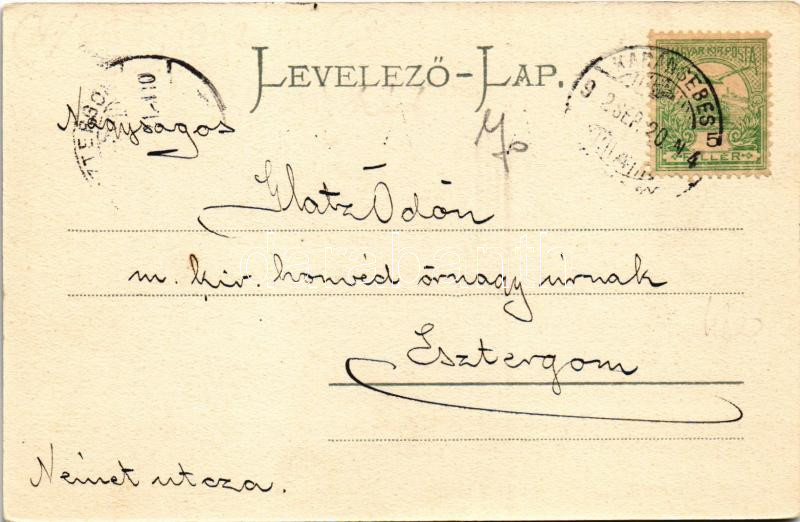 LEVELEZŐ-LAP.
MAGYAR KIR. POSTA
5
FILLÉR
KARANSEBES
902 SEP. 20. N 4
Nagyságos
Glatz Ödön
m. kir. honvéd őrnagy úrnak
Esztergom
Német utcza.